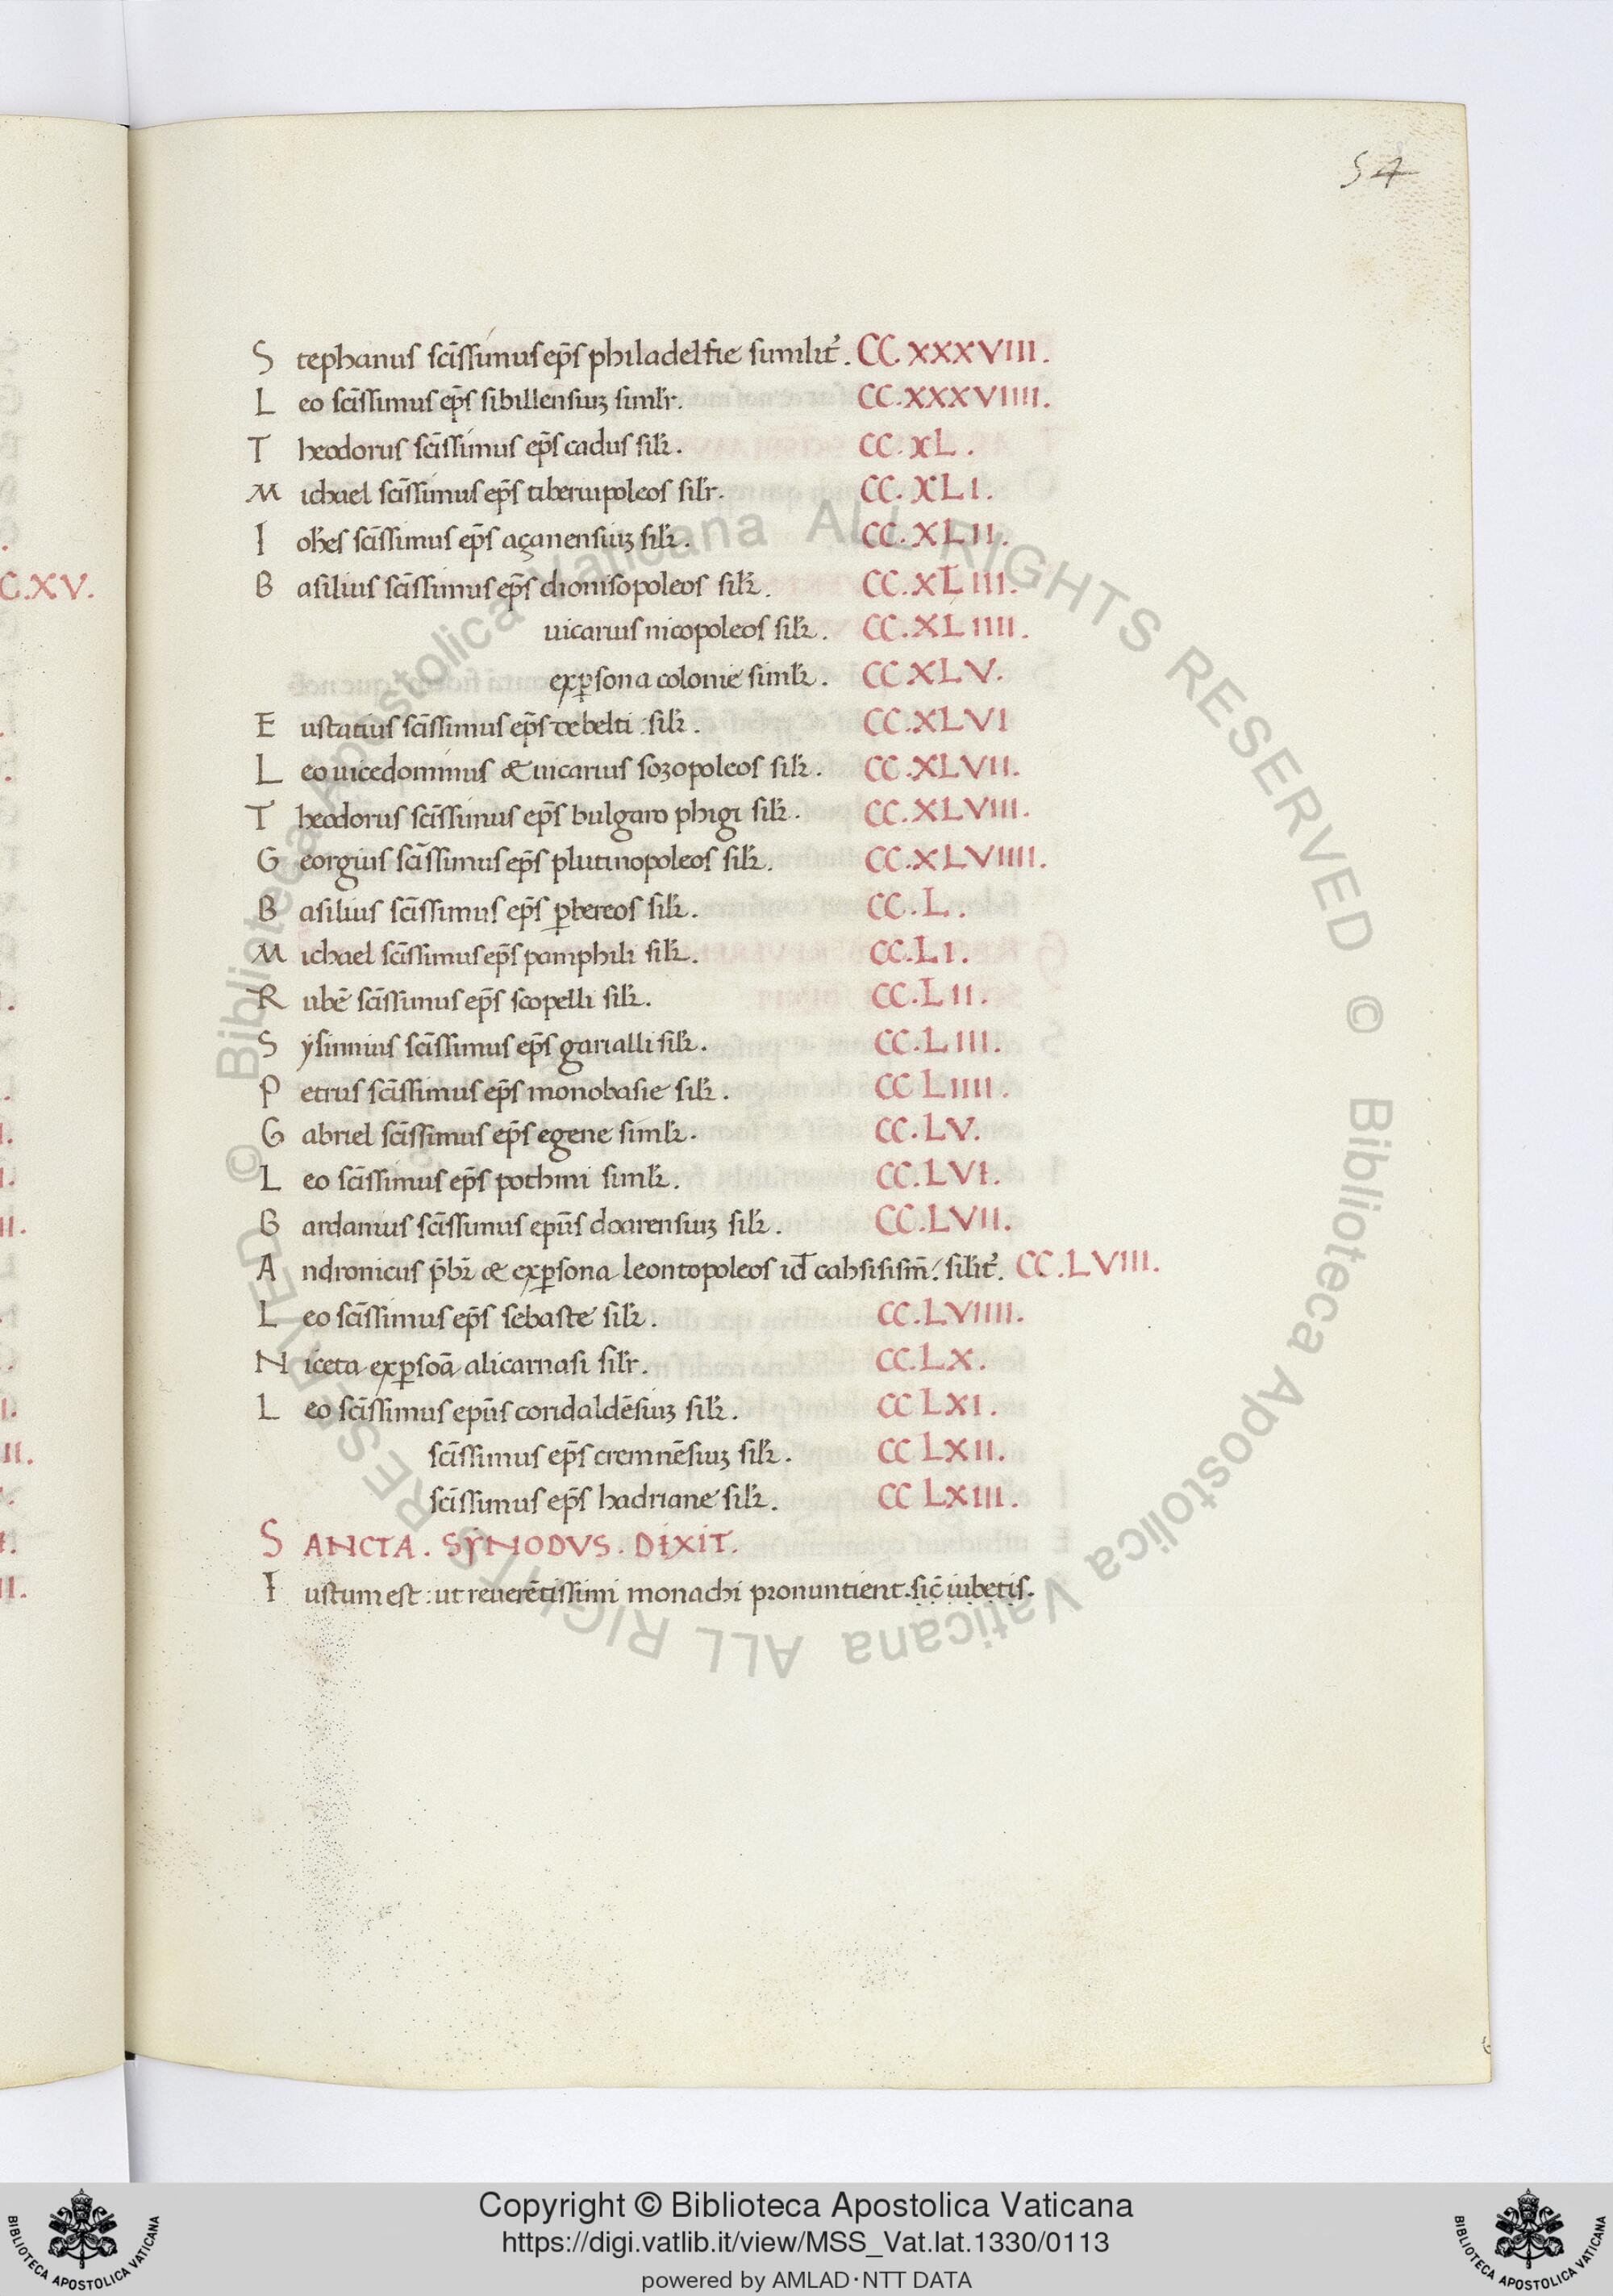 54
C.XV.
Stephanus sc̄issimus ep̄s philadelfie similit̄. CC.XXXVIII.
Leo sc̄issimus ep̄s sibillensiuꝫ simlr̄. CC.XXXVIIII.
Theodorus sc̄issimus ep̄s cadus silr̄. CC.XL.
Michael sc̄issimus ep̄s tiberiupoleos silr̄. CC.XLI.
Ioh̄es sc̄issimus ep̄s açanensiuꝫ silr̄. CC.XLII.
Basilius sc̄issimus ep̄s dionisopoleos silr̄. CC.XLIII.
uicarius nicopoleos silr̄. CC.XLIIII.
exꝑsona colonie simlr̄. CC XLV.
Eustatius sc̄issimus ep̄s debelti silr̄. CC.XLVI
Leo uicedominus & uicarius sozopoleos silr̄. CC.XLVII.
Theodorus sc̄issimus ep̄s bulgaro phigi silr̄. CC.XLVIII.
Georgius sc̄issimus ep̄s plutinopoleos silr̄. CC.XLVIIII.
Basilius sc̄issimus ep̄s ꝑbereos silr̄. CC.L.
Michael sc̄issimus ep̄s pamphili silr̄. CC.LI.
Rubē sc̄issimus ep̄s scopelli silr̄. CC.LII.
Sysinnius sc̄issimus ep̄s garialli silr̄. CC.LIII.
Petrus sc̄issimus ep̄s monobasie silr̄. CC LIIII.
Gabriel sc̄issimus ep̄s egene simlr̄. CC.LV.
Leo sc̄issimus ep̄s pothmi simlr̄. CC.LVI.
Bardanius sc̄issimus epūs doarensiuꝫ silr̄. CC.LVII.
Andronicus p̄br̄ & exꝑsona leontopoleos id̄ cahsisism̄. silit̄. CC.LVIII.
Leo sc̄issimus ep̄s sebaste silr̄. CC.LVIIII.
Niceta exꝑsoā alicarnasi silr̄. CC.LX.
Leo sc̄issimus epūs coridaldēsiuꝫ silr̄. CC LXI.
sc̄issimus ep̄s cremnēsiuꝫ silr̄. CC LXII.
sc̄issimus ep̄s hadriane silr̄. CC LXIII.
SANCTA. SYNODVS. DIXIT.
Iustum est: ut reuerētissimi monachi pronuntient. sic̄ iubetis.
Copyright © Biblioteca Apostolica Vaticana
https://digi.vatlib.it/view/MSS_Vat.lat.1330/0113
powered by AMLAD·NTT DATA
BIBLIOTECA APOSTOLICA VATICANA
BIBLIOTECA APOSTOLICA VATICANA
© Biblioteca Apostolica Vaticana ALL RIGHTS RESERVED
© Biblioteca Apostolica Vaticana ALL RIGHTS RESERVED